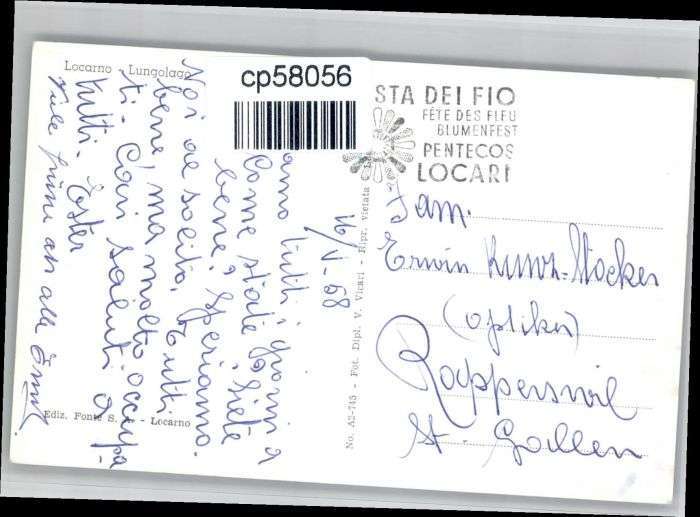 Locarno - Lungolago
cp58056
STA DEI FIO
FÊTE DES FLEU
BLUMENFEST
PENTECOS
LOCARI
16/V-68
amo tutti i giorni a
Come state? Siete
bene? Speriamo.
Noi al solito. Tutti
bene, ma molto occupa-
ti. Cari saluti a
tutti. Ester
an alle
Fam.
Erwin Kunz-Stocker
(optiker)
Rapperswil
St. Gallen
Ediz. Fonte S. - Locarno
No. A2-745 - Fot. Dipl. V. Vicari - Ripr. Vietata